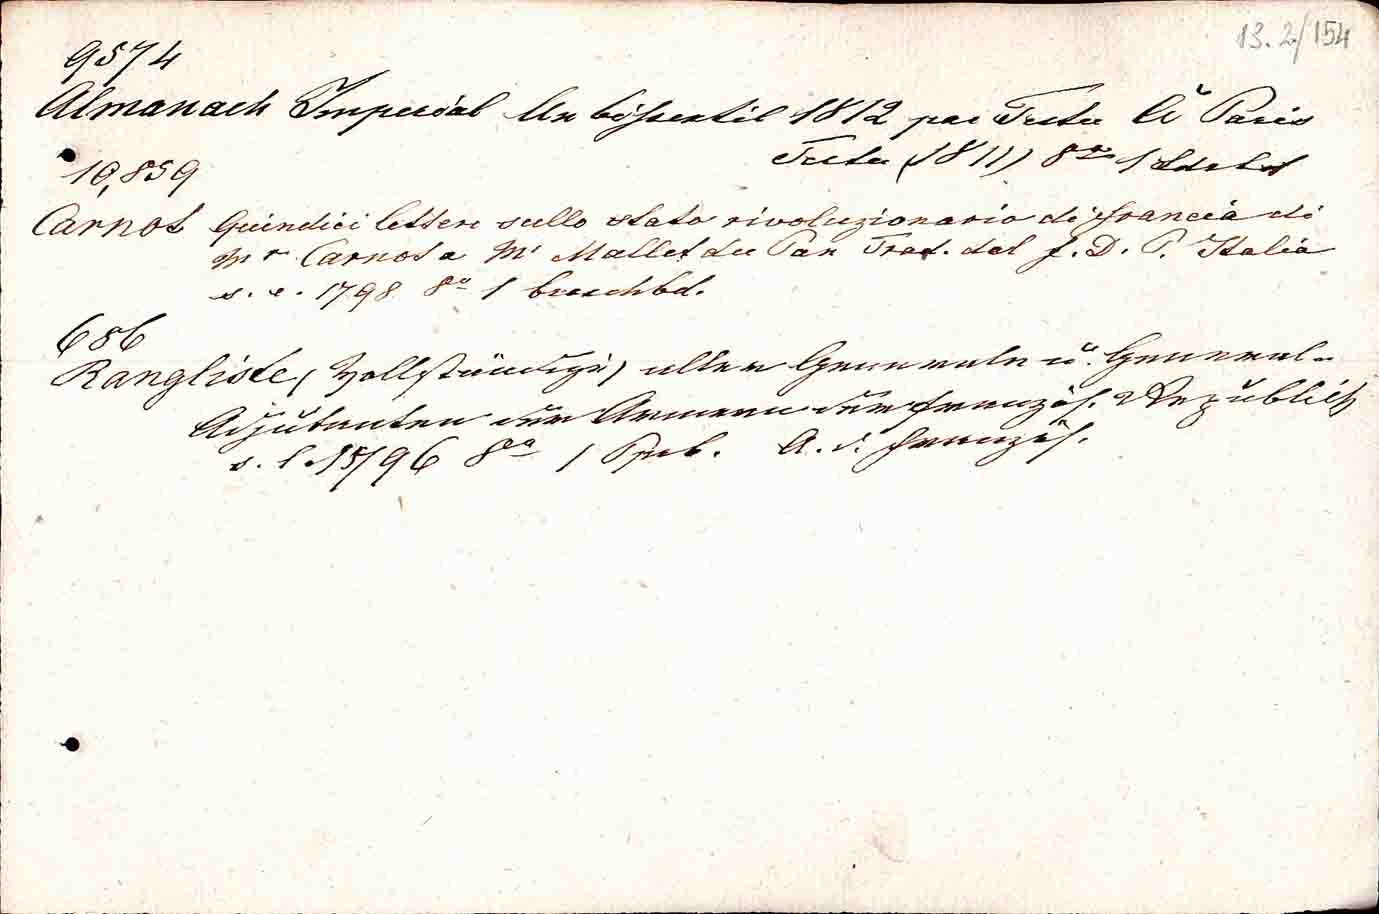 13.2/154
9574
Almanach Imperial bissextil 1812 par Testu à Paris
Testu (1811) 8° 1
10,859
Carnot Quindici lettere sullo stato rivoluzionario di Francia di
Mr Carnot a Mr Mallet du Pan Trad. dal f. D. P. Italia
1798 8° 1 broschbd.
686
Rangliste, (Vollständige) aller Generale u. General-
Adjutanten der Armeen der französ. Republick
s. l. 1796 8° 1 Ppb. A. d. französ.